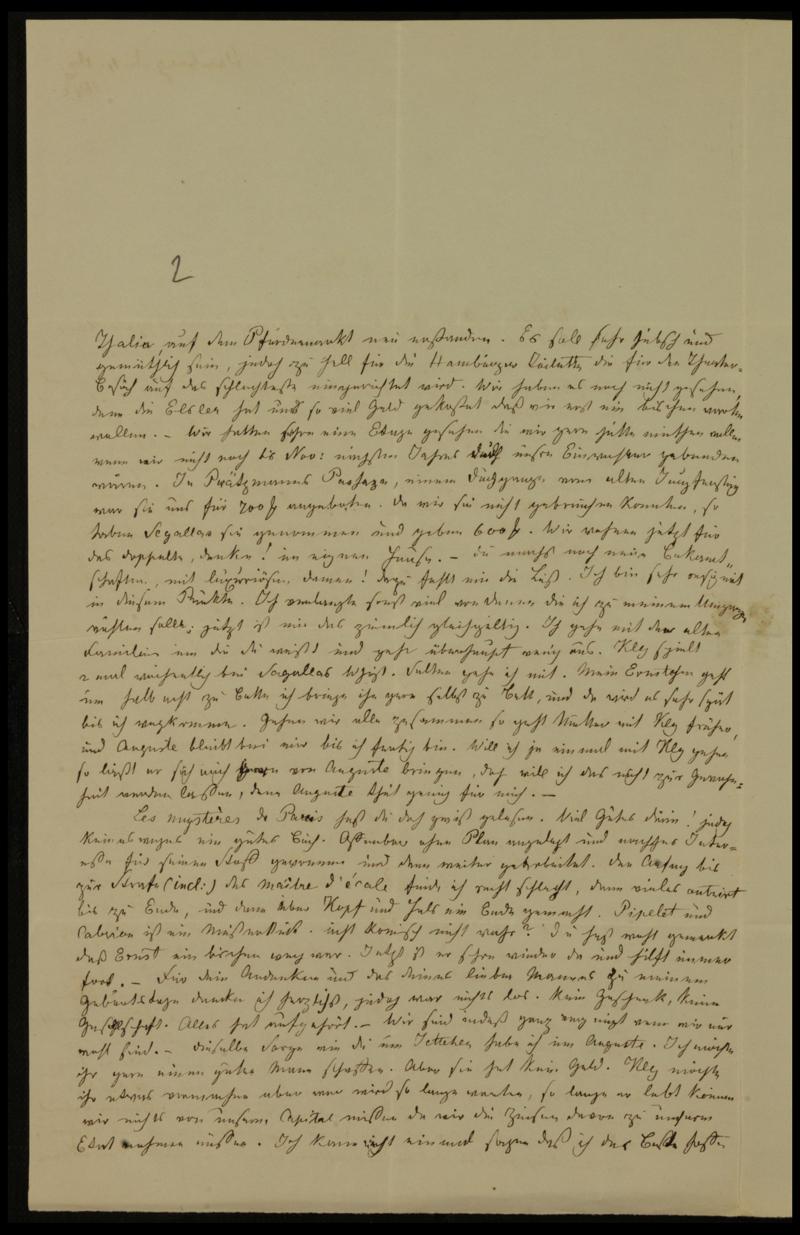 2
Thalia, auf dem Pferdemarkt neu erstanden. Es soll sehr hübsch und
gemüthlich sein, jedoch zu hell für die Hamburger Toilette die für den Theater-
besuch auf das schlechteste eingerichtet wird. Wir haben es noch nicht gesehen,
denn die Elsler hat uns so viel Geld gekostet daß wir erst ein bischen warten
wollen. – Wir hatten schon eine Etage gesehen die wir gern hätte miethen wollen
wenn wir nicht noch bis Nov: nächsten Jahres durch unsre Einwohner gebunden
wären. In Prätzmanns Passage, einem Durchgange vom alten Jungfernstieg
war sie uns für 700 angeboten. Da wir sie nicht gebrauchen konnten, so
haben Segallas sie genommen und geben 600. Wir wohnen jetzt für
das doppelte, denke! im eignen Hause. – Du machst noch neue Bekannt-
schaften, mit luxuriösen Damen! dazu fehlt mir die Lust. Ich bin sehr resignirt
in diesem Punkte. Ich verlangte sonst viel von denen die ich zu meinem Umgange
wählen sollte; jetzt ist mir das ziemlich gleichgültig. Ich gehe mit den alten
Familien um die du weißt und gehe überhaupt wenig aus. Kley spielt
2 mal wöchentlich bei Segallas Whist. Selten gehe ich mit. Mein Ernstchen geht
um halb acht zu Bette ich bringe ihn gern selbst zu Bett, und da wird es sehr spät
bis ich wegkomme. Gehen wir alle zusammen so geht Mutter mit Kley früher,
und Auguste bleibt bei mir bis ich fertig bin. Will ich ja einmal mit Kley gehen
so läßt er sich auch gern von Auguste bringen, doch will ich das nicht zur Gewohn-
heit werden lassen, denn Auguste thut genug für mich. –
Les mystères de Paris hast du doch gewiß gelesen. Viel Gutes darin! jedoch
keineswegs ein gutes Buch. Offenbar ohne Plan angelegt und nachher Inter-
esse für seinen Stoff gewonnen und dann weiter gearbeitet. Den Anfang bis
zur Strafe (incl:) des maître d'école finde ich recht schlecht, dann vieles outrirt
bis zu Ende, und dann über Kopf und Hals ein Ende gemacht. Pipelet und
Cabrion ist ein Meisterstück. recht komisch nicht wahr? Du hast wohl gemerkt
daß Ernst ein bischen weg war. Jetzt ist er schon wieder da und hilft immer
fort. – Für dein Andenken und das deines lieben Mannes zu meinem
Geburtstage danke ich herzlichst, jedoch war nichts los. Kein Geschenk, keine
Gesellschaft. Alles hat aufgehört. – Wir sind indeß ganz vergnügt wenn wir nur
wohl sind. – Dieselbe Sorge wie du um Jettchen habe ich um Auguste. Ich möchte
ihr gern einen guten Mann schaffen. Aber sie hat kein Geld. Kley möchte
ihr etwas vermachen aber wer wird so lange warten, so lange er lebt können
wir nichts von unserm Capital missen da wir die Zinsen davon zu unserm
Etat nehmen müssen. Ich kann nicht einmal sagen daß ich das Beste hoffe